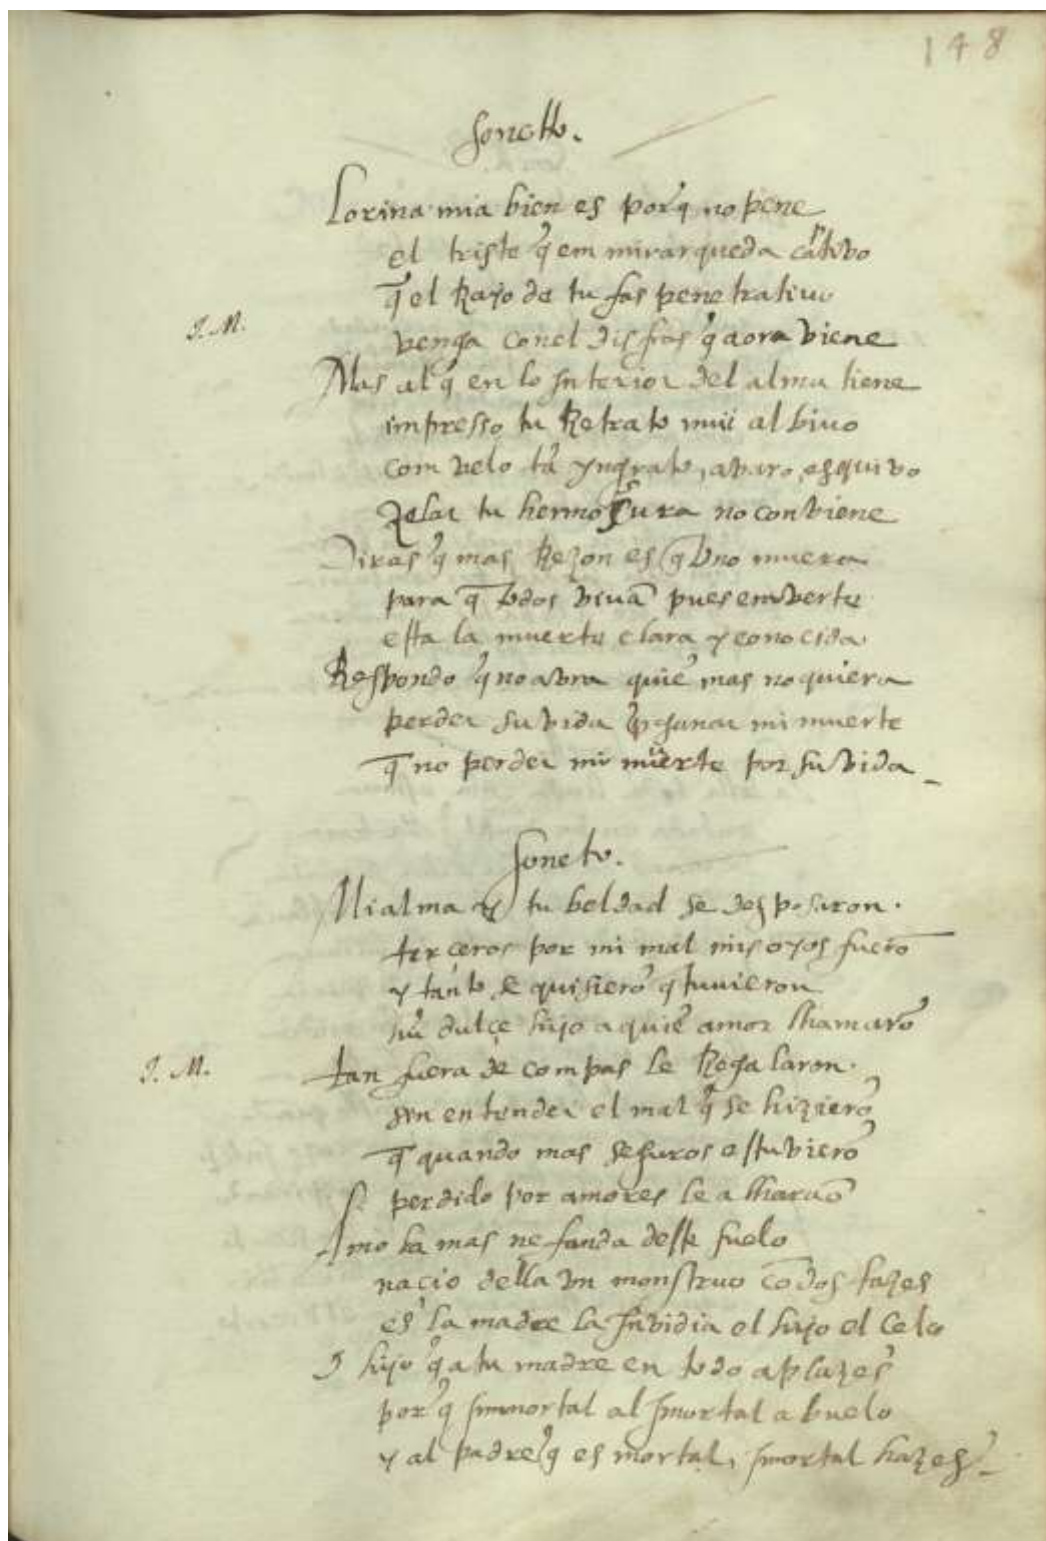 148
Sonetto.
Lorina mia bien es porq̃ no pene
el triste q̃ em mirar queda cativo
q̃ el Rayo de tu fas penetrativo
J. M.
venga con el disfras q̃ aora viene
Mas al q̃ en lo Interior del alma tiene
impresso tu Retrato mui al bivo
com velo tã yngrato, avaro, esquivo
Zelar tu hermosura no conviene
Diras q̃ mas Rezon es q̃ Uno muera
para q̃ todos vivã pues em verte
esta la muerte clara y conocida
Respondo q̃ no avra quiẽ mas no quiera
perder su vida ganar mi muerte
q̃ no perder mi muerte por su vida
Soneto.
Mi alma y tu beldad se desposaron.
terceros por mi mal mis ojos fuerõ
y tanto se quisierõ q̃ tuvieron
hũ dulçe hijo a quiẽ amor lhamarõ
J. M.
tan fuera de compas le Regalaron.
sin entender el mal q̃ se hizierõ
q̃ quando mas seguros estuvierõ
perdido por amores le alharõ
Amo la mas nefanda deste suelo
nacio della un monstruo cõ dos fazes
es la madre la Invidia el hijo el Celo
O hijo q̃ a tu madre en todo aplazes
porq̃ Immortal al Imortal abuelo
y al padre q̃ es mortal, Imortal hazes